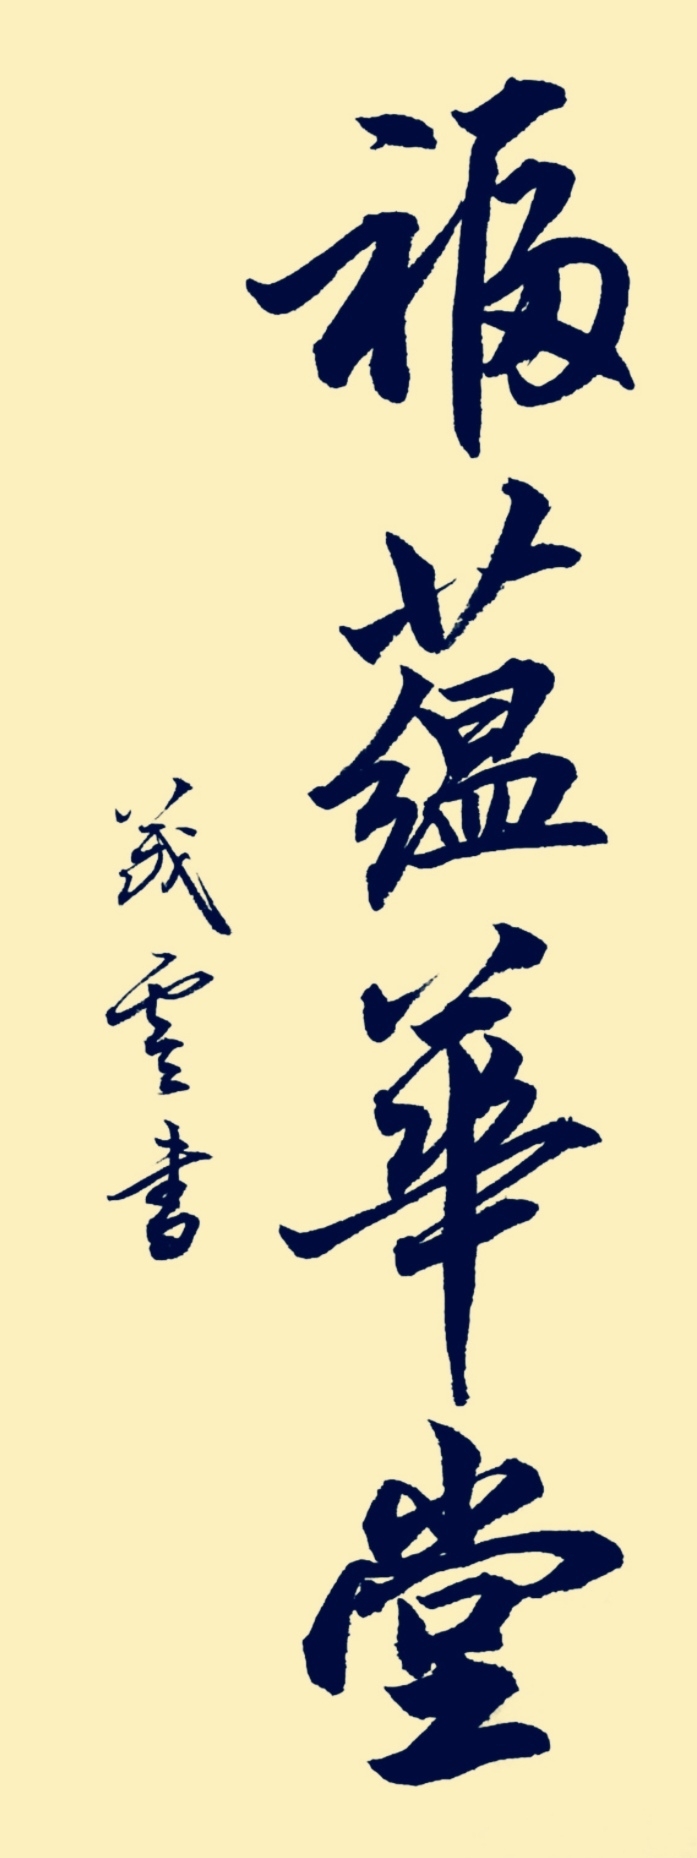 福蘊華堂
茂雲書